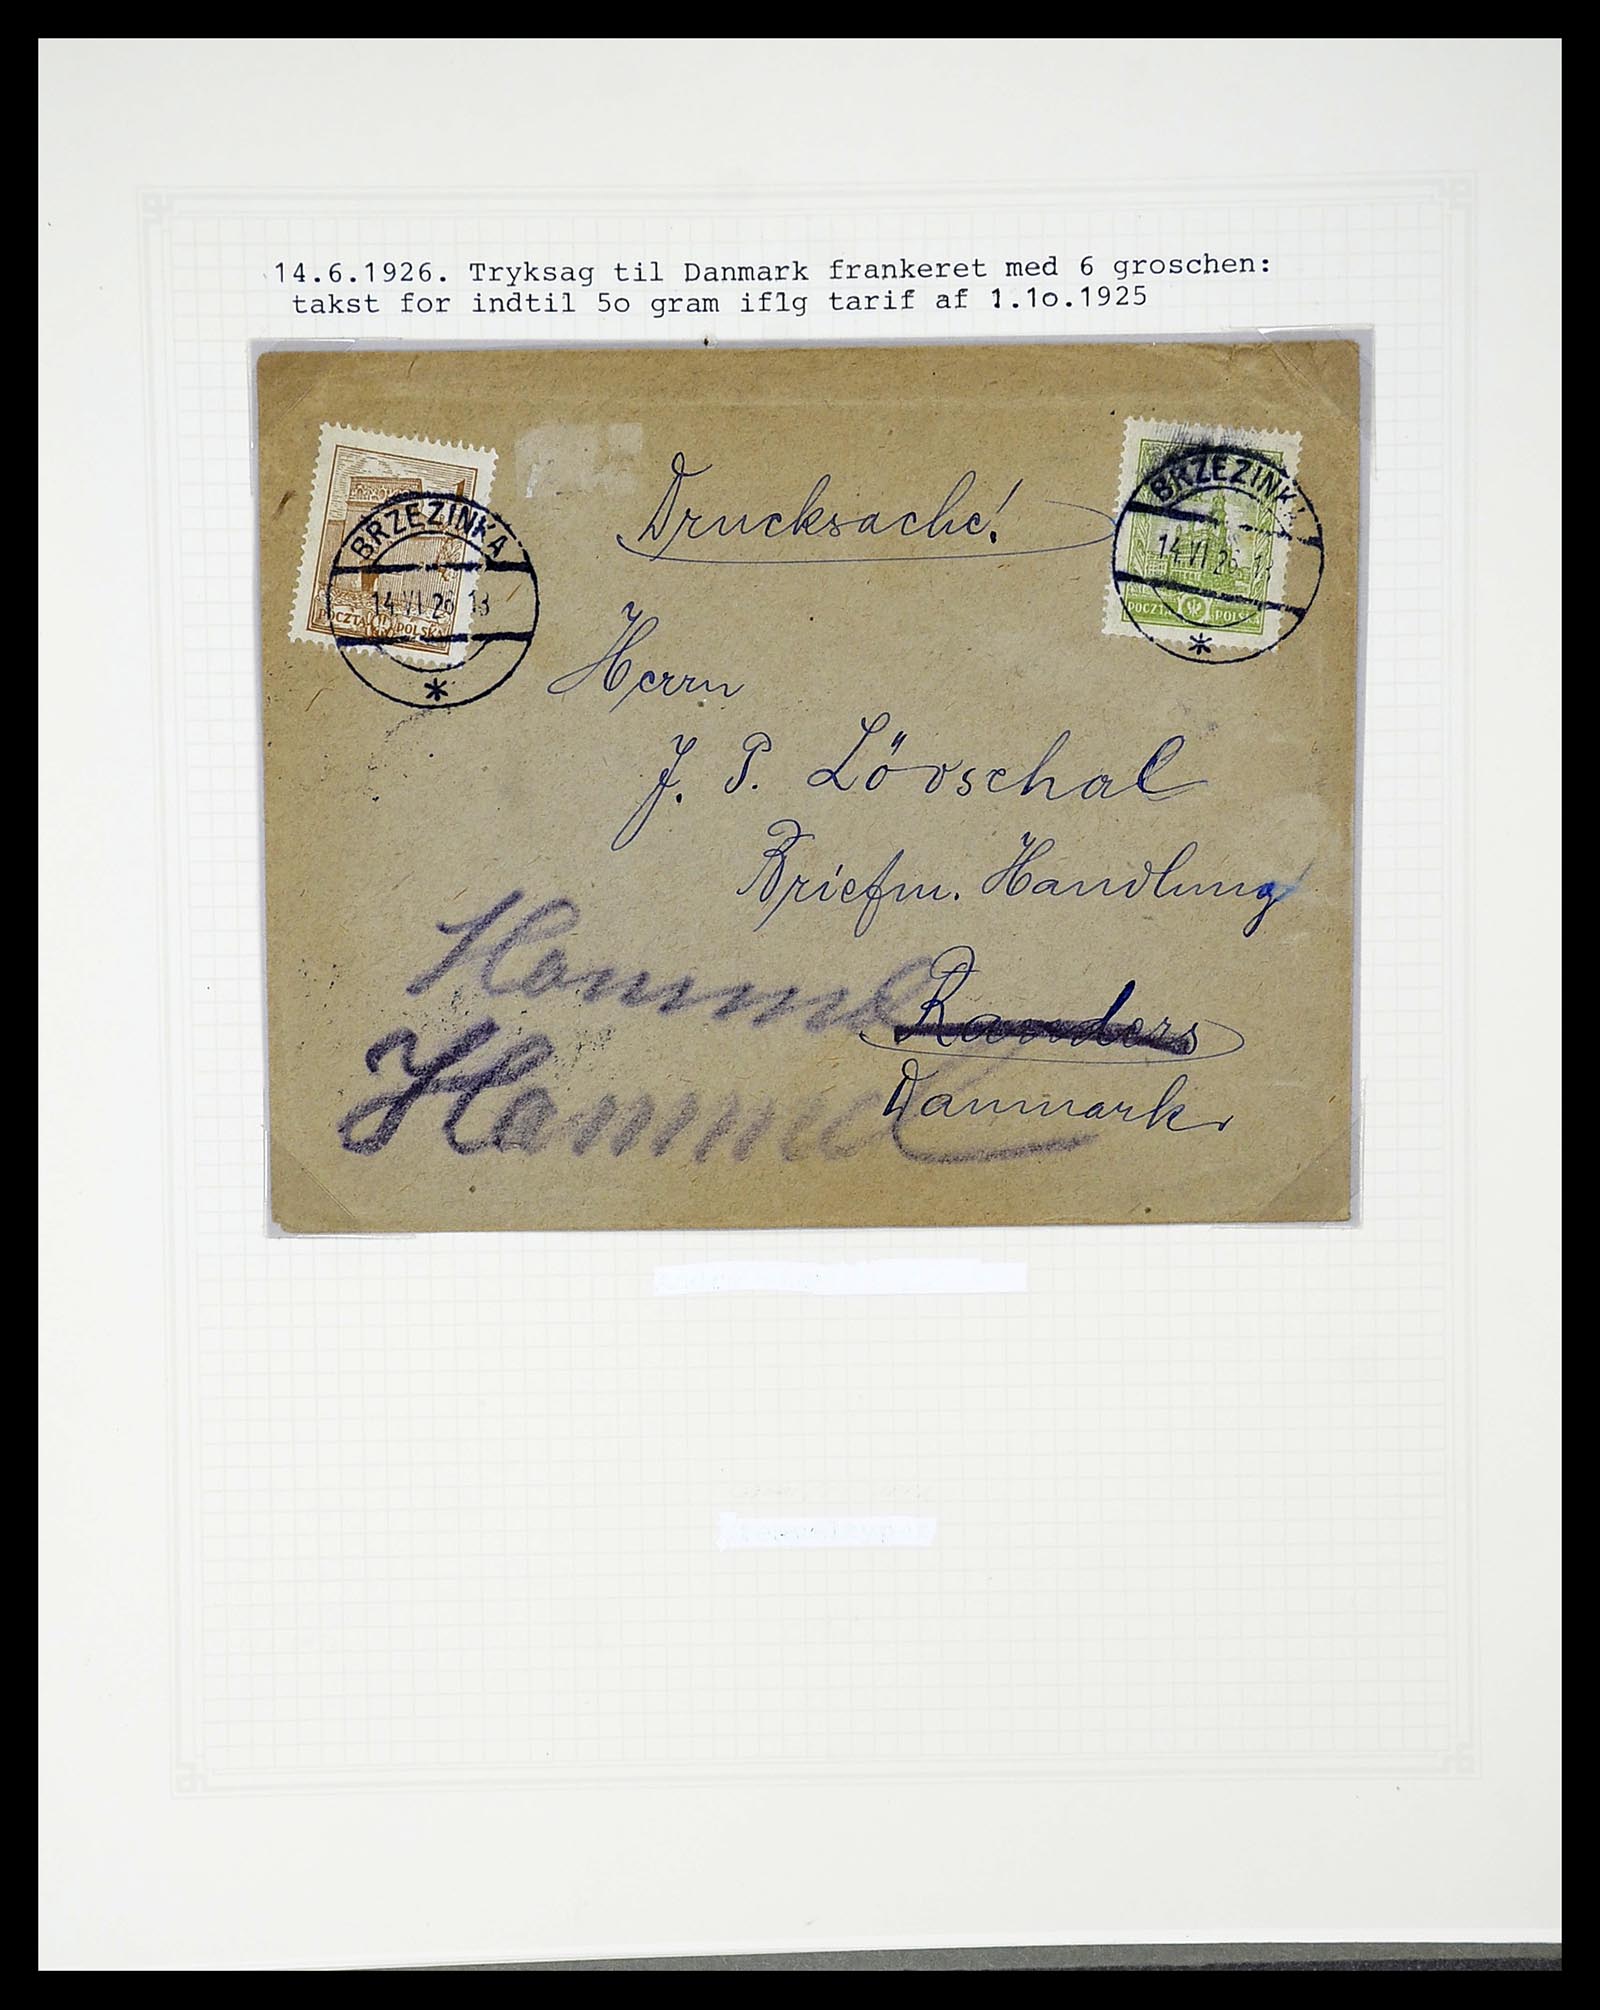 14.6.1926. Tryksag til Danmark frankeret med 6 groschen:
takst for indtil 5o gram iflg tarif af 1.1o.1925
Drucksache!
BRZEZINKA
14 VI 26 13
POCZTA POLSKA
BRZEZINKA
14 VI 26 13
POCZTA POLSKA
Herrn
J. P. Lövschal
Briefm. Handlung
Hammel
Randers
Hammel
Danmark